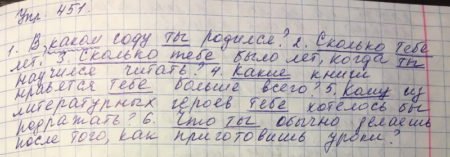 Упр. 451.
1. В каком году ты родился? 2. Сколько тебе
лет. 3. Сколько тебе было лет, когда ты
научился читать? 4. Какие книги
нравятся тебе больше всего? 5. Кому из
литературных героев тебе хотелось бы
подражать? 6. Что ты обычно делаешь
после того, как приготовишь уроки?